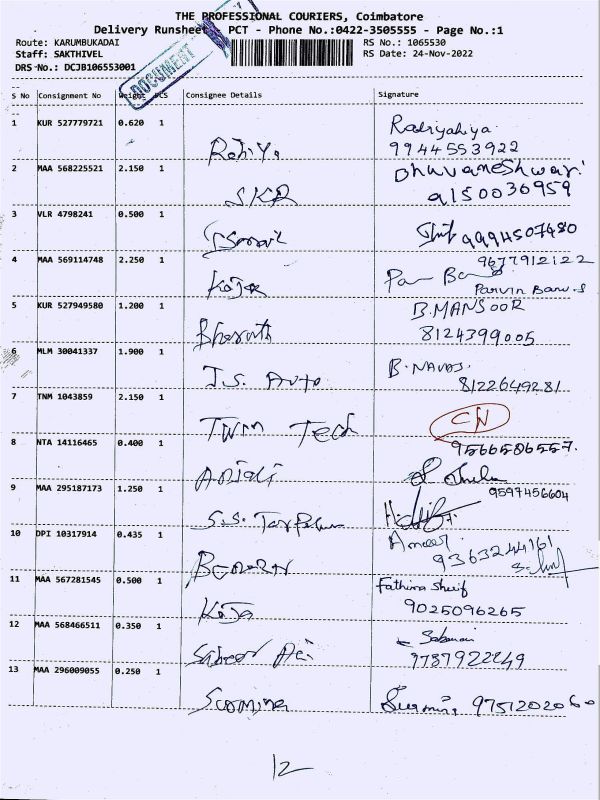 THE PROFESSIONAL COURIERS, Coimbatore
Delivery Runsheet PCT - Phone No.:0422-3505555 - Page No.:1
Route: KARUMBUKADAI RS No.: 1065530
Staff: SAKTHIVEL RS Date: 24-Nov-2022
DRS No.: DCJB106553001
DOCUMENT
S No Consignment No Weight PCS Consignee Details Signature
1 KUR 527779721 0.620 1 Rabiya Rabiyahiya
9944553922
2 MAA 568225521 2.150 1 SKR Bhuvaneshwari
9150036959
3 VLR 4798241 0.500 1 Ismail 9994507480
4 MAA 569114748 2.250 1 Kaja 9677912122
Parvin Banu.S
5 KUR 527949580 1.200 1 Bharath B.MANSOOR
8124399005
6 MLM 30041337 1.900 1 J.S. Auto B.NAVAS.
8122649281
7 TNM 1043859 2.150 1 Twin Tech CN
9566506557.
8 NTA 14116465 0.400 1 Anjali
9597456604
9 MAA 295187173 1.250 1 S.S.
10 DPI 10317914 0.435 1 Ameer
9363244161
11 MAA 567281545 0.500 1 Kaja Fathima Sherif
9025096265
12 MAA 568466511 0.350 1
9787922249
13 MAA 296009055 0.250 1 9751202060
12